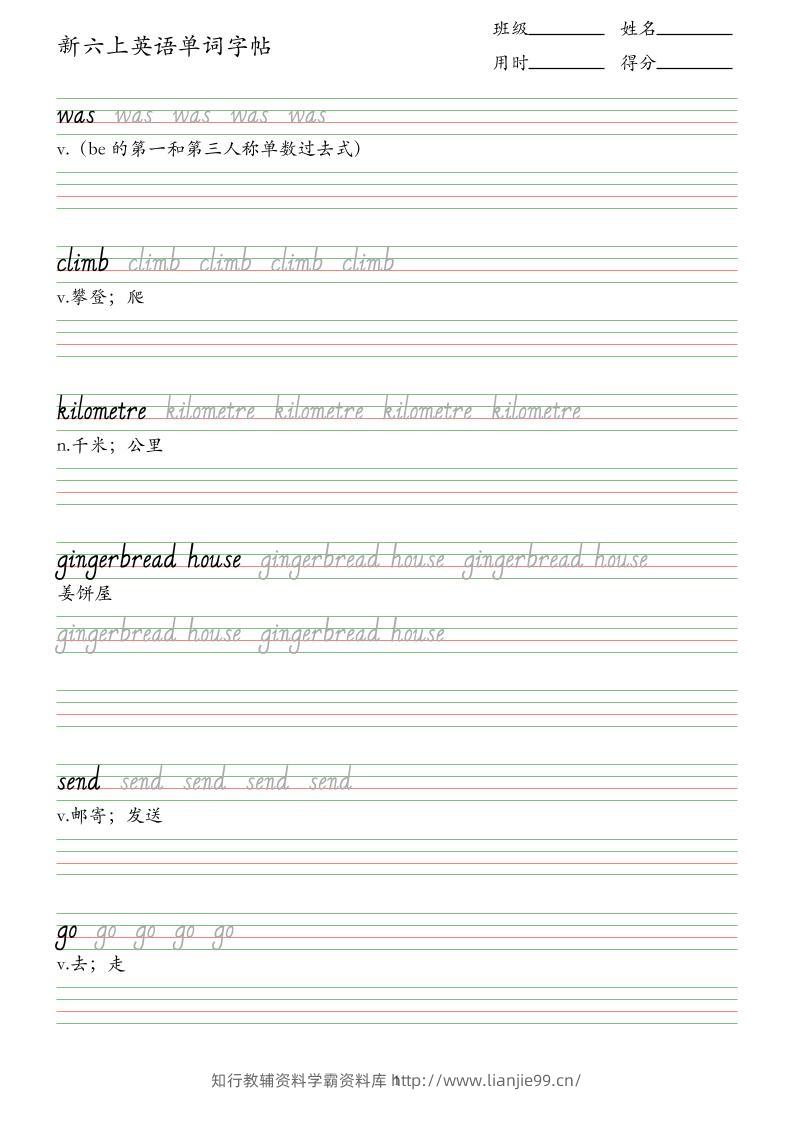 新六上英语单词字帖
班级 姓名
用时 得分
was was was was was
v.（be 的第一和第三人称单数过去式）
climb climb climb climb climb
v.攀登；爬
kilometre kilometre kilometre kilometre kilometre
n.千米；公里
gingerbread house gingerbread house gingerbread house
姜饼屋
gingerbread house gingerbread house
send send send send send
v.邮寄；发送
go go go go go
v.去；走
知行教辅资料学霸资料库 http://www.lianjie99.cn/
1